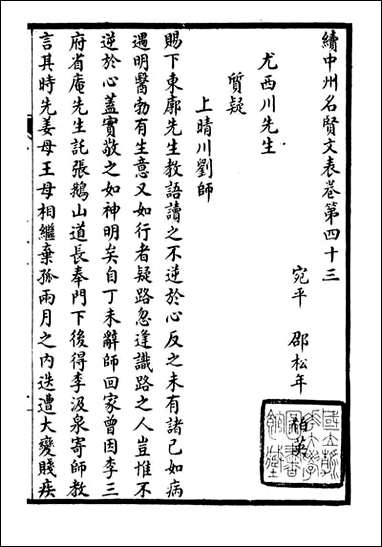 續中州名賢文表卷第四十三
宛平 邵松年 伯英
尤西川先生
質疑
上晴川劉師
賜下東廓先生教語讀之不逆於心反之未有諸己如病
遇明醫勃有生意又如行者疑路忽逢識路之人豈惟不
逆於心蓋實敬之如神明矣自丁未辭師回家曾因李三
府省庵先生託張鵝山道長奉門下後得李汲泉寄師教
言其時先姜母王母相繼棄孤兩月之內迭遭大變賤疾